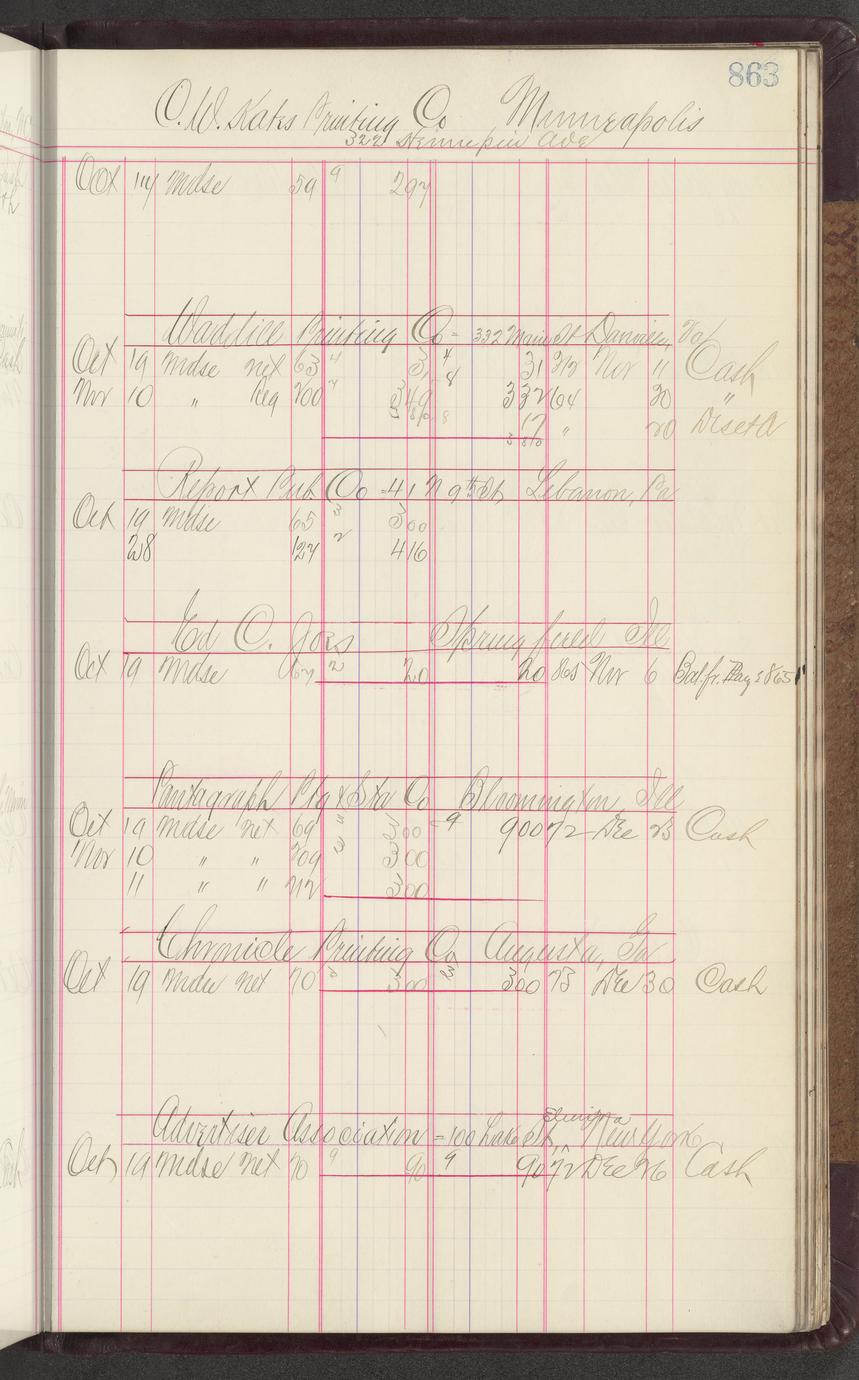 863
C. W. Kates Printing Co Minneapolis
322 Hennepin Ave
Oct 14 Mdse 59 9 297
Waddill Printing Co - 332 Main St Danville, Va
Oct 19 Mdse net 63 4 31 4 31 212 Nov 11 Cash
Nov 10 " Reg 200 349 8 332 64 20 "
380 17 " 20 Disct
380
Report Pub. Co - 41 N 9th St, Lebanon, Pa
Oct 19 Mdse 65 3 300
28 127 2 416
Ed C. Springfield Ill
Oct 19 Mdse 67 2 20 20 865 Nov 6 Bal. fr. Pag 865
Pantagraph Ptg & Sta Co Bloomington, Ill
Oct 19 Mdse net 69 " 300 - 9 900 72 Dec 23 Cash
Nov 10 " " 209 3 300
11 " " 212 300
Chronicle Printing Co Augusta, Ga
Oct 19 Mdse net 70 3 300 3 300 73 Dec 30 Cash
Elmira
Advertiser Association - 100 Lake St, New York
Oct 19 Mdse net 70 9 90 9 90 72 Dec 26 Cash